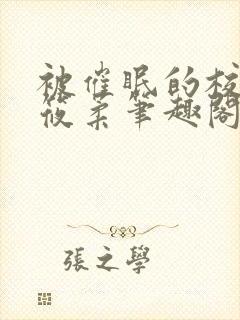 被催眠的校
筱柔筆趣閣
張之學